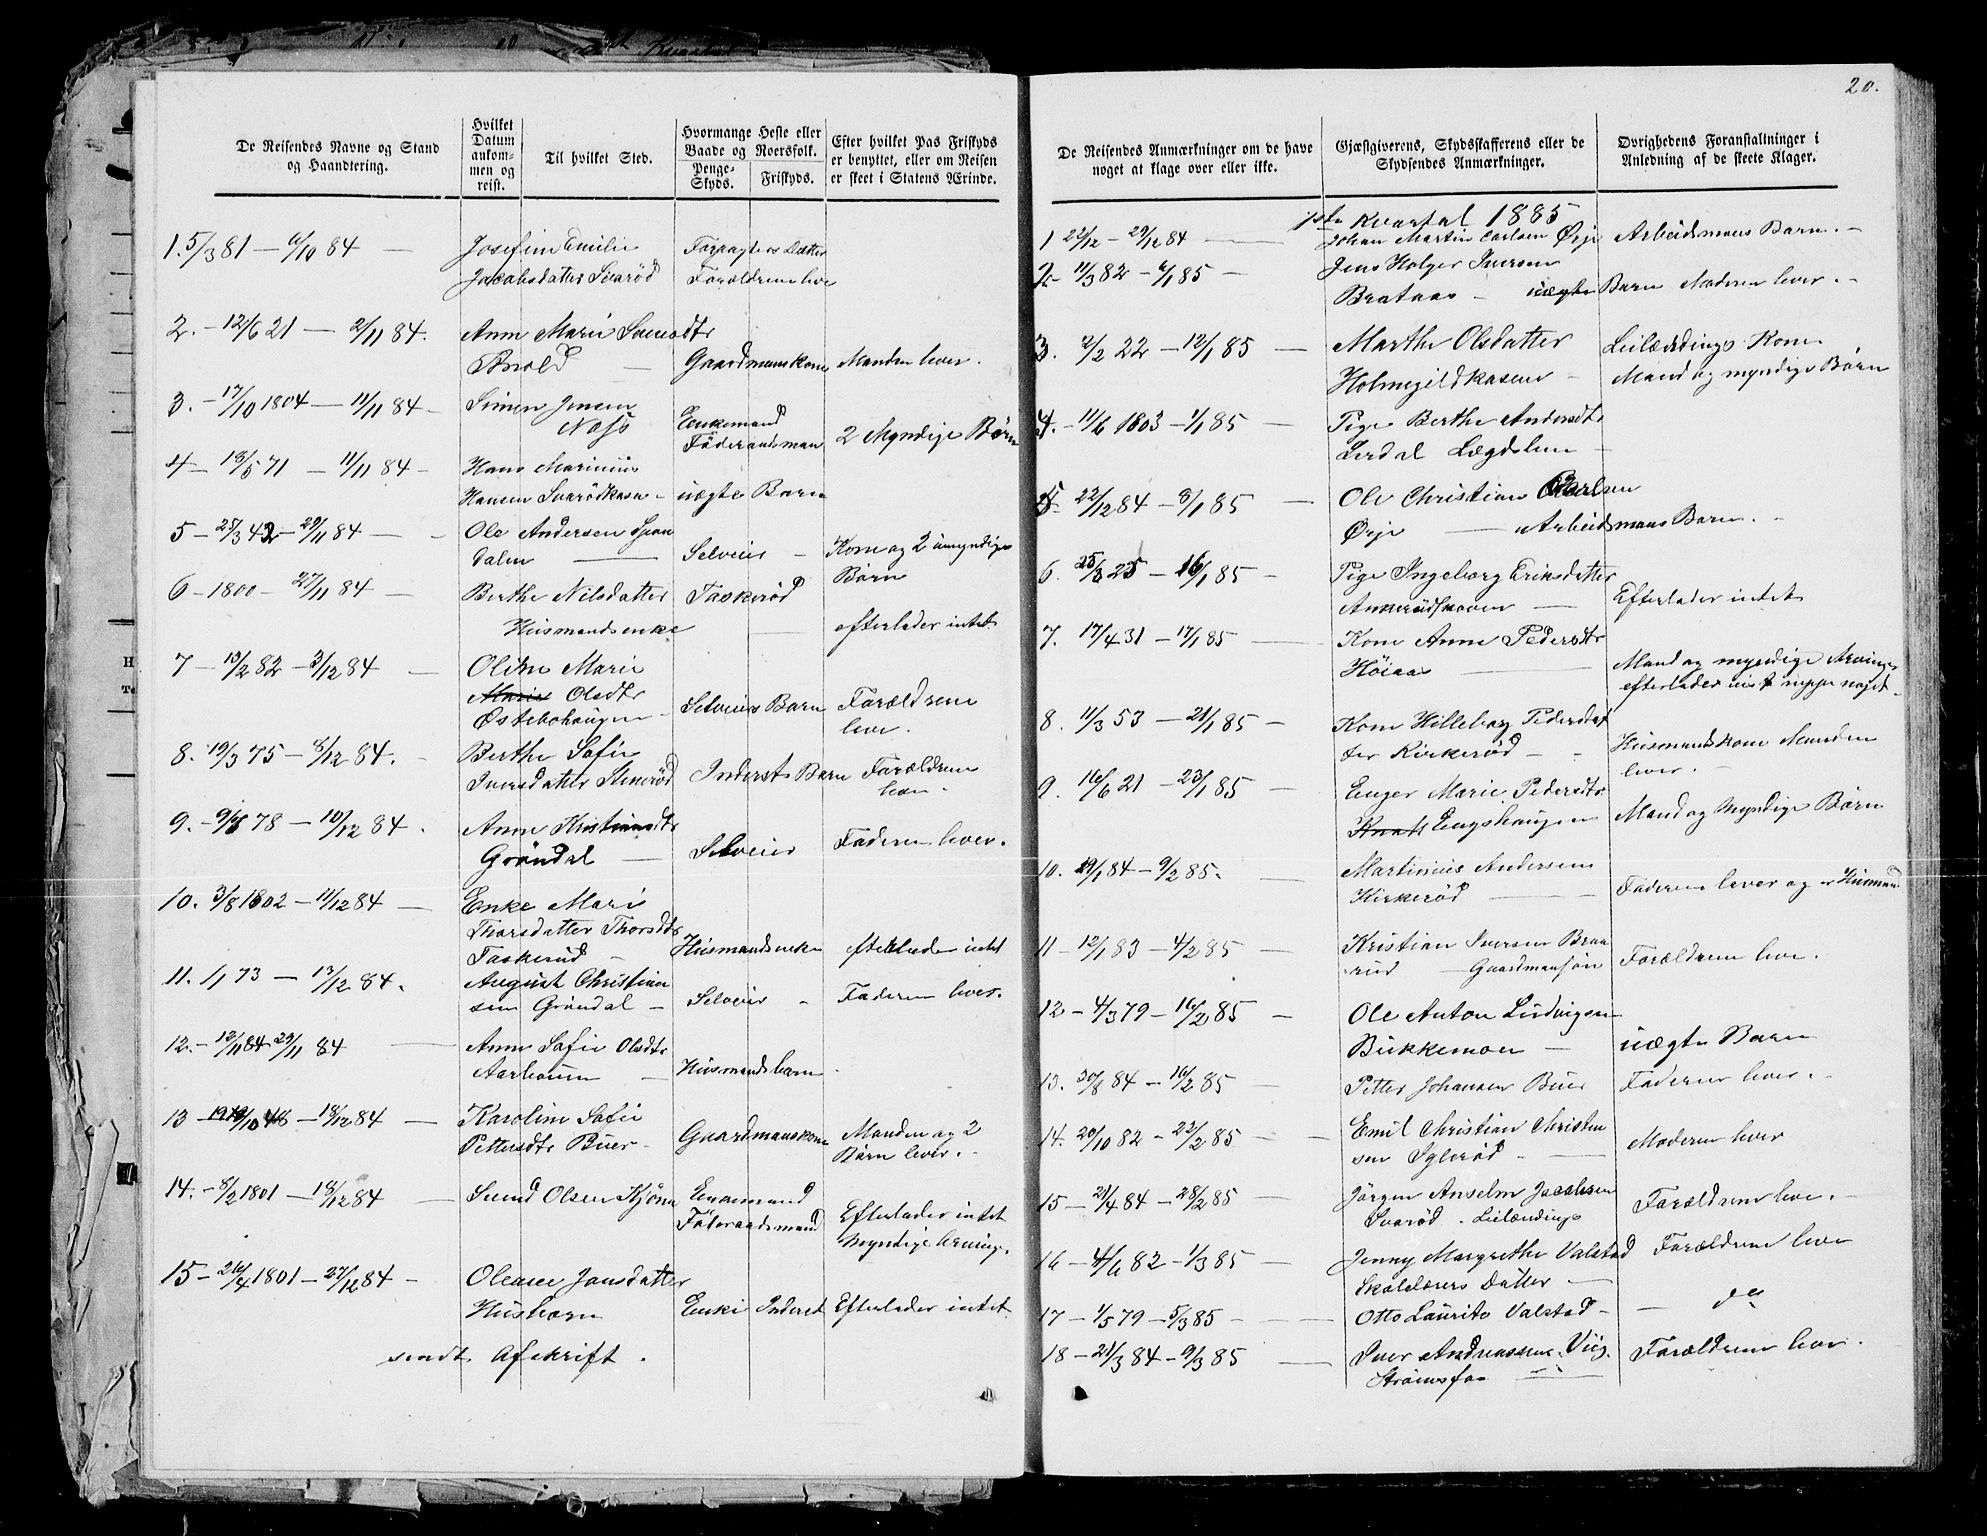 20.
De Reisendes Navne og Stand og Haandtering.
Hvilket Datum ankommen og reist.
Til hvilket Sted.
Hvormange Heste eller Baade og Roersfolk.
Penge-Skyds.
Friskyds.
Efter hvilket Pas Friskyds er benyttet, eller om Reisen er skeet i Statens Ærinde.
1. 5/3 81 — 6/10 84 — Josefine Emilie Forpagters Datter
Jacobsdatter Svarød Forældrene leve
2. – 12/6 21 — 2/11 84. Anne Marie
Gaardmanskone Manden lever.
3. – 17/10 1804 — 11/11 84 – Simen Jensen Enkemand
Næss Föderaadsman 2 Myndige Börn
4 – 13/5 71 — 11/11 84 – Hans Marinius
Hansen Svarödkasa – uægte Barn
5 – 25/3 42 – 29/11 84 — Ole Andersen
dalen — Selveier – Kone og 2 umyndige
Börn
6 – 1800 – 27/11 84 — Berthe Nilsdatter Taskeröd
Husmandsenke — efterlader intet
7 – 13/2 82 – 3/12 84 — Oline Marie
Marie Olsdtr Selveiers Barn Forældrene
Østebohaugen – lever.
8. 19/3 75 – 8/12 84. Berthe Sofie
Iversdatter Stenerød Inderst Barn Forældrene
leve.
9. – 78 – 10/12 84. Anne Kristiansdtr
Gröndal — Selveier Faderen lever.
10. 3/8 1802 – 11/12 84 — Enke Mari
Thorsdatter Thorsdtr
Taskerud – Husmandsenke efterlader intet
11. 1/1 73 — 13/12 84. August Christian
sen Gröndal – Selveier – Faderen lever.
12. – 13/11 84 29/11 84 — Anne Sofie Olsdtr
Aarbouen — Husmandsbarn
13 – 48 – 18/12 84 — Karoline Sofie
Pettersdtr Buer – Gaardmanskone Manden og 2
Börn lever.
14. – 8/2 1801 – 18/12 84 — Svend Olsen Kjönn Enkemand
Föderaadsmand Efterlader intet
Myndige Arving.
15 – 26/4 1801 – 27/12 84 – Oleane Jonsdatter
Husbørn Enke Inderst Efterlader intet
sendt Afskrift.
De Reisendes Anmærkninger om de have noget at klage over eller ikke.
Gjæstgiverens, Skydsskafferens eller de Skydsendes Anmærkninger.
Øvrighedens Foranstaltninger i Anledning af de skeete Klager.
1ste Kvartal 1885
1 22/12 – 29/12 84 — Johan Martin Carlsen Ørje Arbeidsmans Barn. –
2 – 11/3 82 – 6/1 85 – Jens Holger Iversen
Brataas – uægte Barn Moderen lever. –
3. 2/2 22 – 12/1 85 — Marthe Olsdatter Leilændings Kone
Holmegildkasen – Mand og myndige Børn
4. – 11/6 1803 – 1/1 85 – Pige Berthe Andersdtr
Lerdal Lægdslem –
5 22/12 84 – 8/1 85 — Ole Christian Carlsen
Ørje — Arbeidsmans Barn. –
6. 25/3 25 – 16/1 85 – Pige Ingeborg Eriksdatter
Ankerödskoven — Efterlader intet
7. 17/4 31 – 17/1 85 — Kone Anne Pedersdtr
Höiaas — Mand og myndige Arvinge
efterlader vist neppe noget
8. 11/3 53 — 21/1 85 – Kone Hilleborg Pedersdat
ter Kirkerød – – Husmandskone Manden
lever. –
9. 16/6 21 – 23/1 85 — Enger Marie Pedersdtr
Engshaugen Mand og Myndige Børn
10. 19/1 84 – 9/2 85. — Martinius Andersen
Kirkerød — Faderen lever og er Husmand
11 – 12/1 83 – 4/2 85 — Kristian Iversen Braa
rud – Gaardmansön Forældrene leve.
12 – 4/3 79 – 16/2 85 – Ole Anton Ludvigsen
Bukkemoen — uægte Barn
13. 30/8 84 – 16/2 85 Petter Johansen Buer Faderen lever. –
14. 20/10 82 – 22/2 85 — Emil Christian Christen
sen Sglerød – Moderen lever
15 – 21/4 84 – 28/2 85 — Jörgen Anselm Jacobsen
Svarød. Leilændings Forældrene leve. –
16 – 4/6 82 – 1/3 85 — Jenny Margrethe Valstad Forældrene leve
Skolelærers Datter —
17 – 1/5 79 – 5/3 85 – Otto Lauritz Valstad – — do
18 – 21/3 84 – 9/3 85 — Iver Andreassen Viig. Forældrene leve.
Strömsfos